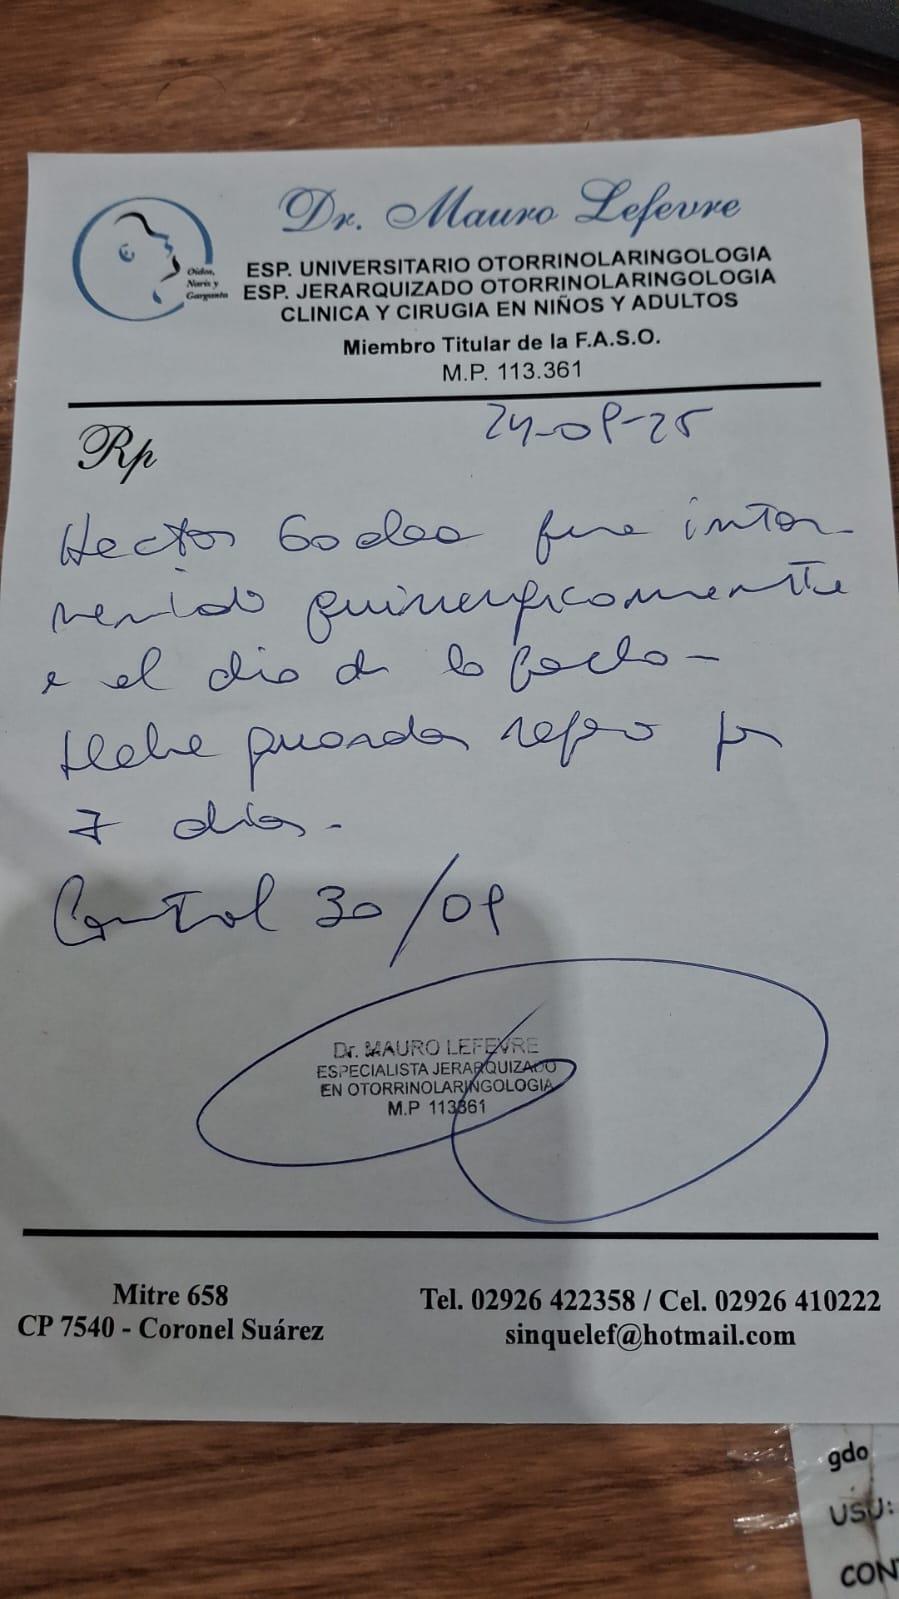 Dr. Mauro Lefevre
Oídos,
Nariz y
Garganta
ESP. UNIVERSITARIO OTORRINOLARINGOLOGIA
ESP. JERARQUIZADO OTORRINOLARINGOLOGIA
CLINICA Y CIRUGIA EN NIÑOS Y ADULTOS
Miembro Titular de la F.A.S.O.
M.P. 113.361
Rp
24-09-25
Hector fue inter
venido quirurgicamente
el dia de la fecha-
Debe guardar reposo por
7 dias-
Control 30/09
Dr. MAURO LEFEVRE
ESPECIALISTA JERARQUIZADO
EN OTORRINOLARINGOLOGIA
M.P 113361
Mitre 658
CP 7540 - Coronel Suárez
Tel. 02926 422358 / Cel. 02926 410222
sinquelef@hotmail.com
gdo
USU:
CON